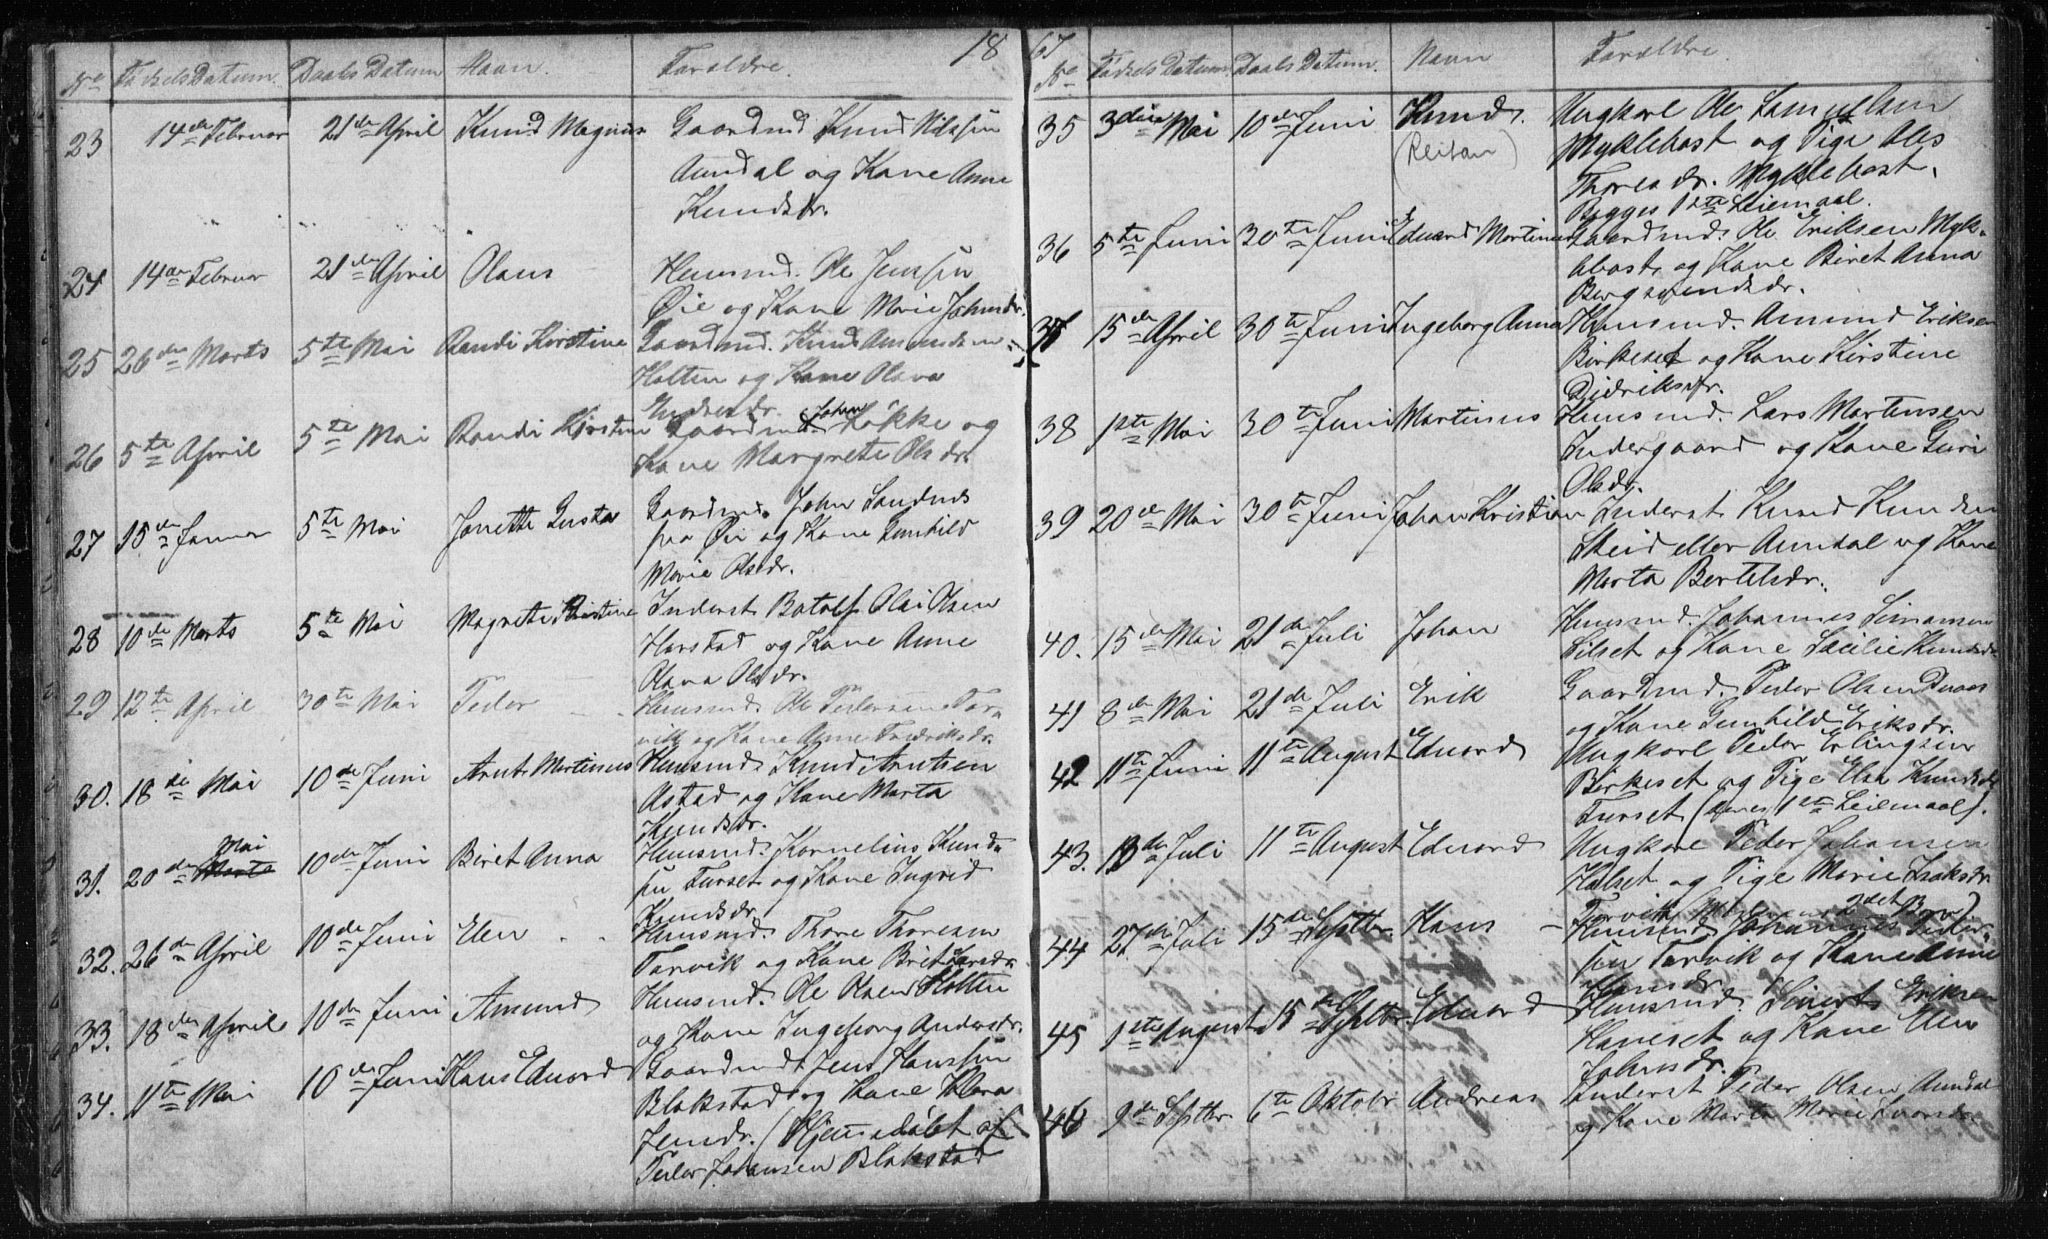 18
No Fødsels Datum. Daabs Datum Navn. Forældre.
23 14de Februar 21de April Knud Magnus Gaardmd Knud Nilssen
Aundal og Kone Anne
Knudsdr.
24 14de Februar 21de April Olaus Huusmd. Ole Jenssen
Øie og Kone Marie Johnsdr.
25 26de Marts 5te Mai Randi Kirstine Gaardmd. Knud Amundsen
Holten og Kone Olava
26 5te April 5te Mai Randi Kirstine Gaardmd. John Løkke og
Kone Margrete Olsdr.
27 15de Januar 5te Mai Jonette Gusta Gaardmd. John Sandnes
fra Øie og Kone Gunhild
Marie Olsdr.
28 10de Marts 5te Mai Magrete Kirstine Inderst Botolf Olai Olsen
Harstad og Kone Anne
Olava Olsdr.
29 12te April 30te Mai Peder Huusmd. Ole Pedersen Tor-
vik og Kone Anne Fredriksdr.
30. 18de Mai 10de Juni Arnt Martinus Huusmd. Knud Arntsen
Astad og Kone Marta
Knudsdr.
31. 20de Marts Mai 10de Juni Beret Anna Huusmd. Kornelius Knud-
sen Furset og Kone Ingrid
Knudsdr.
32. 26de April 10de Juni Elen Huusmd. Thore Thoresen
Torvik og Kone Brit Larsdr.
33. 18de April 10de Juni Amund Huusmd. Ole Olsen Holten
og Kone Ingeborg Andersdr.
34. 11te Mai 10de Juni Hans Eduard Gaardmd. Jens Hanssen
Blakstad og Kone Olava
Jensdr. (Hjemmedøbt af
Peder Johansen Blakstad
67
No Fødsels Datum. Daabs Datum. Navn Forældre
35 3die Mai 10de Juni Knud. Ungkarl Ole Samuelsen
(Reitan) Myklebost og Pige Ales
Thoresdr. Myklebost.
Begges 1ste Leiemaal.
36 5te Juni 30te Juni Eduard Martinus Gaardmd. Ole Eriksen Myk-
lebost og Kone Beret Anna
Bergsvendsdr.
37 15de April 30te Juni Ingeborg Anna Huusmd. Amund Eriksen
Birkeset og Kone Kirstine
Didriksdr.
38 1ste Mai 30te Juni Martinus Huusmd. Lars Martinsen
Indergaard og Kone Guri
Olsdr.
39 20de Mai 30te Juni Johan Kristian Inderst Knud Knudsen
Skeid eller Aundal og Kone
Marta Bertelsdr.
40. 15de Mai 21de Juli Johan Huusmd. Johannes Simonsen
Lilset og Kone Sicilie Knudsdr
41 8de Mai 21de Juli Erik Gaardmd. Peder Olsen
og Kone Gunhild Eriksdr.
42 11te Juni 11te August Eduard Ungkarl Peder Erlingsen
Birkeset og Pige Elsa Knudsdr
Furset (deres 1ste Leiemaal).
43. 13de Juli 11te August Eduard Ungkarl Peder Johansen
Halset og Pige Marie Isaksdr
Torvik 2det
44 27de Juli 15de Septbr. Hans Huusmd Johannes Peder-
sen Torvik og Kone Anne
Hansdr.
45 1ste August 15de Septbr. Eduard Huusmd. Sivert Eriksen
Haneset og Kone Elen
Johnsdr.
46 9de Septbr. 6te Oktobr Andreas Inderst Peder Olsen Aundal
og Kone Marta Marie Larsdr.